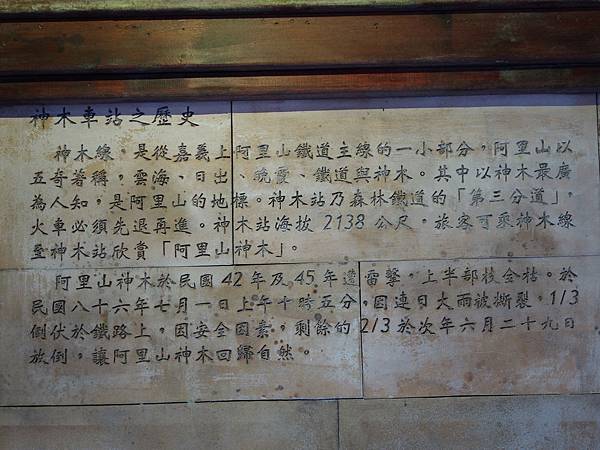 神木車站之歷史
神木線，是從嘉義上阿里山鐵道主線的一小部分，阿里山以
五奇著稱，雲海、日出、晚霞、鐵道與神木。其中以神木最廣
為人知，是阿里山的地標。神木站乃森林鐵道的「第三分道」，
火車必須先退再進。神木站海拔 2138 公尺，旅客可乘神木線
至神木站欣賞「阿里山神木」。
阿里山神木於民國 42 年及 45 年遭雷擊，上半部枝全枯。於
民國八十六年七月一日上午十時五分，因連日大雨被撕裂，1/3
倒伏於鐵路上，因安全因素，剩餘的 2/3 於次年六月二十九日
放倒，讓阿里山神木回歸自然。